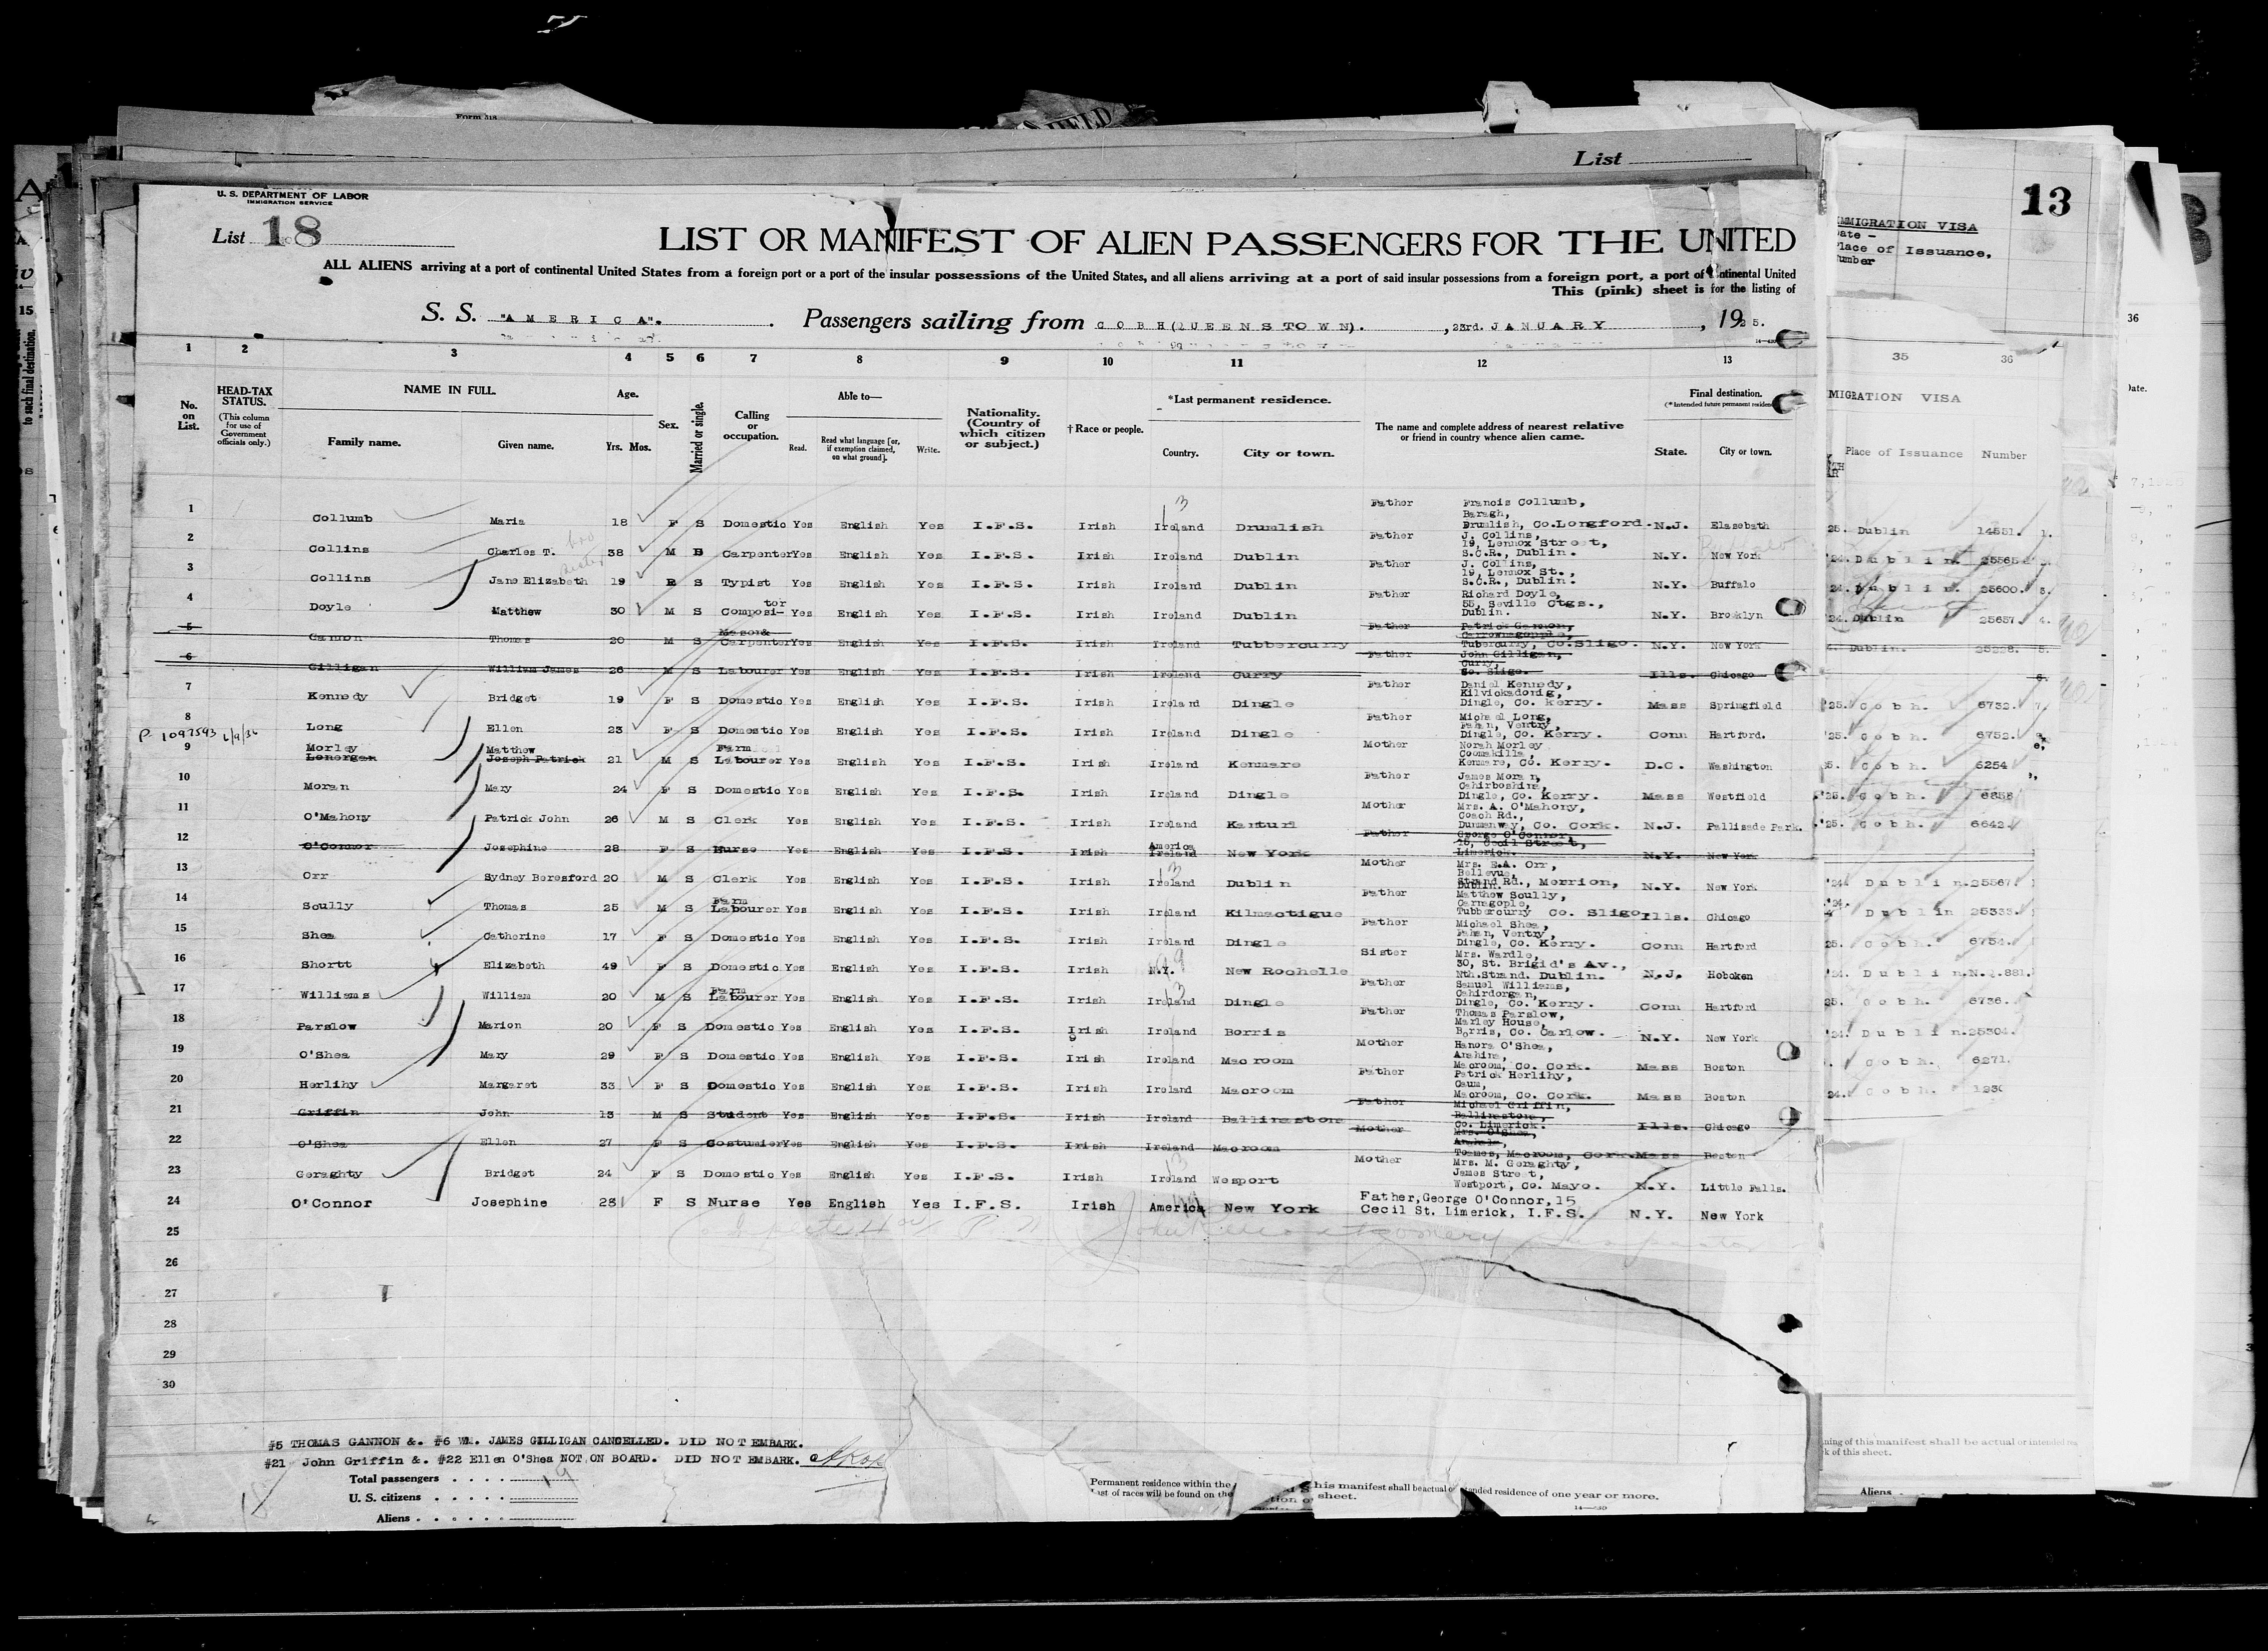 Form 318
SHIELD
List
U. S. DEPARTMENT OF LABOR
IMMIGRATION SERVICE
List 18
13
LIST OR MANIFEST OF ALIEN PASSENGERS FOR THE UNITED
ALL ALIENS arriving at a port of continental United States from a foreign port or a port of the insular possessions of the United States, and all aliens arriving at a port of said insular possessions from a foreign port, a port of continental United
This (pink) sheet is for the listing of
S. S. "AMERICA". Passengers sailing from COBH(QUEENSTOWN). , 23rd. JANUARY , 1925.
IMMIGRATION VISA
Date -
Place of Issuance,
Number
1 2 3 4 5 6 7 8 9 10 11 12 13 35 36
No. on List. HEAD-TAX STATUS. (This column for use of Government officials only.) NAME IN FULL. Family name. Given name. Age. Yrs. Mos. Sex. Married or single. Calling or occupation. Able to— Read. Read what language [or, if exemption claimed, on what ground]. Write. Nationality. (Country of which citizen or subject.) † Race or people. *Last permanent residence. Country. City or town. The name and complete address of nearest relative or friend in country whence alien came. Final destination. (*Intended future permanent residence) State. City or town.
MIGRATION VISA
Place of Issuance Number
1 Collumb Maria 18 F S Domestic Yes English Yes I.F.S. Irish Ireland Drumlish Father Francis Collumb, Baragh, Drumlish, Co.Longford. N.J. Elazebath 25. Dublin 14551. 1.
2 Collins Charles T. 38 M S Carpenter Yes English Yes I.F.S. Irish Ireland Dublin Father J. Collins, 19, Lennox Street, S.C.R., Dublin. N.Y. New York '24. Dublin. 25565
3 Collins Jane Elizabeth 19 F S Typist Yes English Yes I.F.S. Irish Ireland Dublin Father J. Collins, 19 Lennox St., S.C.R., Dublin. N.Y. Buffalo 24. Dublin. 25600. 3.
4 Doyle Matthew 30 M S Compositor Yes English Yes I.F.S. Irish Ireland Dublin Father Richard Doyle, 55, Seville Ctgs., Dublin. N.Y. Brooklyn 24. Dublin 25657. 4.
5 Gannon Thomas 20 M S Mason& Carpenter Yes English Yes I.F.S. Irish Ireland Tubbercurry Father Patrick Gannon, Carrownagopple, Tubercurry, Co.Sligo. N.Y. New York Dublin. 5.
6 Gilligan William James 26 M S Labourer Yes English Yes I.F.S. Irish Ireland Curry Father John Gilligan, Curry, Co. Sligo. Ills. Chicago 6.
7 Kennedy Bridget 19 F S Domestic Yes English Yes I.F.S. Irish Ireland Dingle Father Daniel Kennedy, Kilvickadonig, Dingle, Co. Kerry. Mass Springfield '25. Cobh. 6732. 7.
P 1097593 6/9/36
8 Long Ellen 23 F S Domestic Yes English Yes I.F.S. Irish Ireland Dingle Father Michael Long, Fahan, Ventry, Dingle, Co. Kerry. Conn Hartford. '25. Cobh. 6752.
9 Morley Lonergan Matthew Joseph Patrick 21 M S Farm Labourer Yes English Yes I.F.S. Irish Ireland Kenmare Mother Norah Morley Coomakilla, Kenmare, Co. Kerry. D.C. Washington Cobh. 6254
10 Moran Mary 24 F S Domestic Yes English Yes I.F.S. Irish Ireland Dingle Father James Moran, Cahirboshina, Dingle, Co. Kerry. Mass Westfield '25. Cobh.
11 O'Mahony Patrick John 26 M S Clerk Yes English Yes I.F.S. Irish Ireland Kanturk Mother Mrs. A. O'Mahony, Coach Rd., Dunmanway, Co. Cork. N.J. Pallisade Park. '25. Cobh. 6642
12 O'Connor Josephine 28 F S Nurse Yes English Yes I.F.S. Irish America Ireland New York Father George O'Connor, 15, Cecil Street, Limerick. N.Y. New York
13 Orr Sydney Beresford 20 M S Clerk Yes English Yes I.F.S. Irish Ireland Dublin Mother Mrs. E.A. Orr, Bellevue, Strand Rd., Merrion, Dublin. N.Y. New York '24. Dublin. 25567.
14 Scully Thomas 25 M S Farm Labourer Yes English Yes I.F.S. Irish Ireland Kilmactigue Father Matthew Scully, Carnagople, Tubbercurry Co. Sligo. Ills. Chicago '24. Dublin 25333.
15 Shea Catherine 17 F S Domestic Yes English Yes I.F.S. Irish Ireland Dingle Father Michael Shea, Fahan, Ventry, Dingle, Co. Kerry. Conn Hartford 25. Cobh. 6754.
16 Shortt Elizabeth 49 F S Domestic Yes English Yes I.F.S. Irish N.Y. New Rochelle Sister Mrs. Wardle, 30, St. Brigid's Av., Nth.Strand. Dublin. N.J. Hoboken '24. Dublin. N.Q.881.
17 Williams William 20 M S Farm Labourer Yes English Yes I.F.S. Irish Ireland Dingle Father Samuel Williams, Cahirdorgan, Dingle, Co. Kerry. Conn Hartford 25. Cobh. 6736.
18 Parslow Marion 20 F S Domestic Yes English Yes I.F.S. Irish Ireland Borris Father Thomas Parslow, Marley House, Borris, Co. Carlow. N.Y. New York '24. Dublin. 25304.
19 O'Shea Mary 29 F S Domestic Yes English Yes I.F.S. Irish Ireland Macroom Mother Hanora O'Shea, Anahira, Macroom, Co. Cork. Mass Boston Cobh. 6271.
20 Herlihy Margaret 33 F S Domestic Yes English Yes I.F.S. Irish Ireland Macroom Father Patrick Herlihy, Caum, Macroom, Co. Cork. Mass Boston 24. Cobh.
21 Griffin John 13 M S Student Yes English Yes I.F.S. Irish Ireland Ballinastona Father Michael Griffin, Ballinastona, Co. Limerick. Ills. Chicago
22 O'Shea Ellen 27 F S Costumier Yes English Yes I.F.S. Irish Ireland Macroom Mother Mrs. O'Shea, Toames, Macroom, Cork. Mass Boston
23 Geraghty Bridget 24 F S Domestic Yes English Yes I.F.S. Irish Ireland Wesport Mother Mrs. M. Geraghty, James Street, Westport, Co. Mayo. N.Y. Little Falls.
24 O'Connor Josephine 28 F S Nurse Yes English Yes I.F.S. Irish America New York Father, George O'Connor, 15 Cecil St. Limerick, I.F.S. N.Y. New York
25
26
27
28
29
30
#5 THOMAS GANNON &. #6 WM. JAMES GILLIGAN CANCELLED. DID NOT EMBARK.
#21 John Griffin &. #22 Ellen O'Shea NOT ON BOARD. DID NOT EMBARK.
Total passengers 19
U. S. citizens
Aliens
Permanent residence within the
his manifest shall be actual
residence of one year or more.
List of races will be found on the
sheet.
ning of this manifest shall be actual or intended
k of this sheet.
Aliens